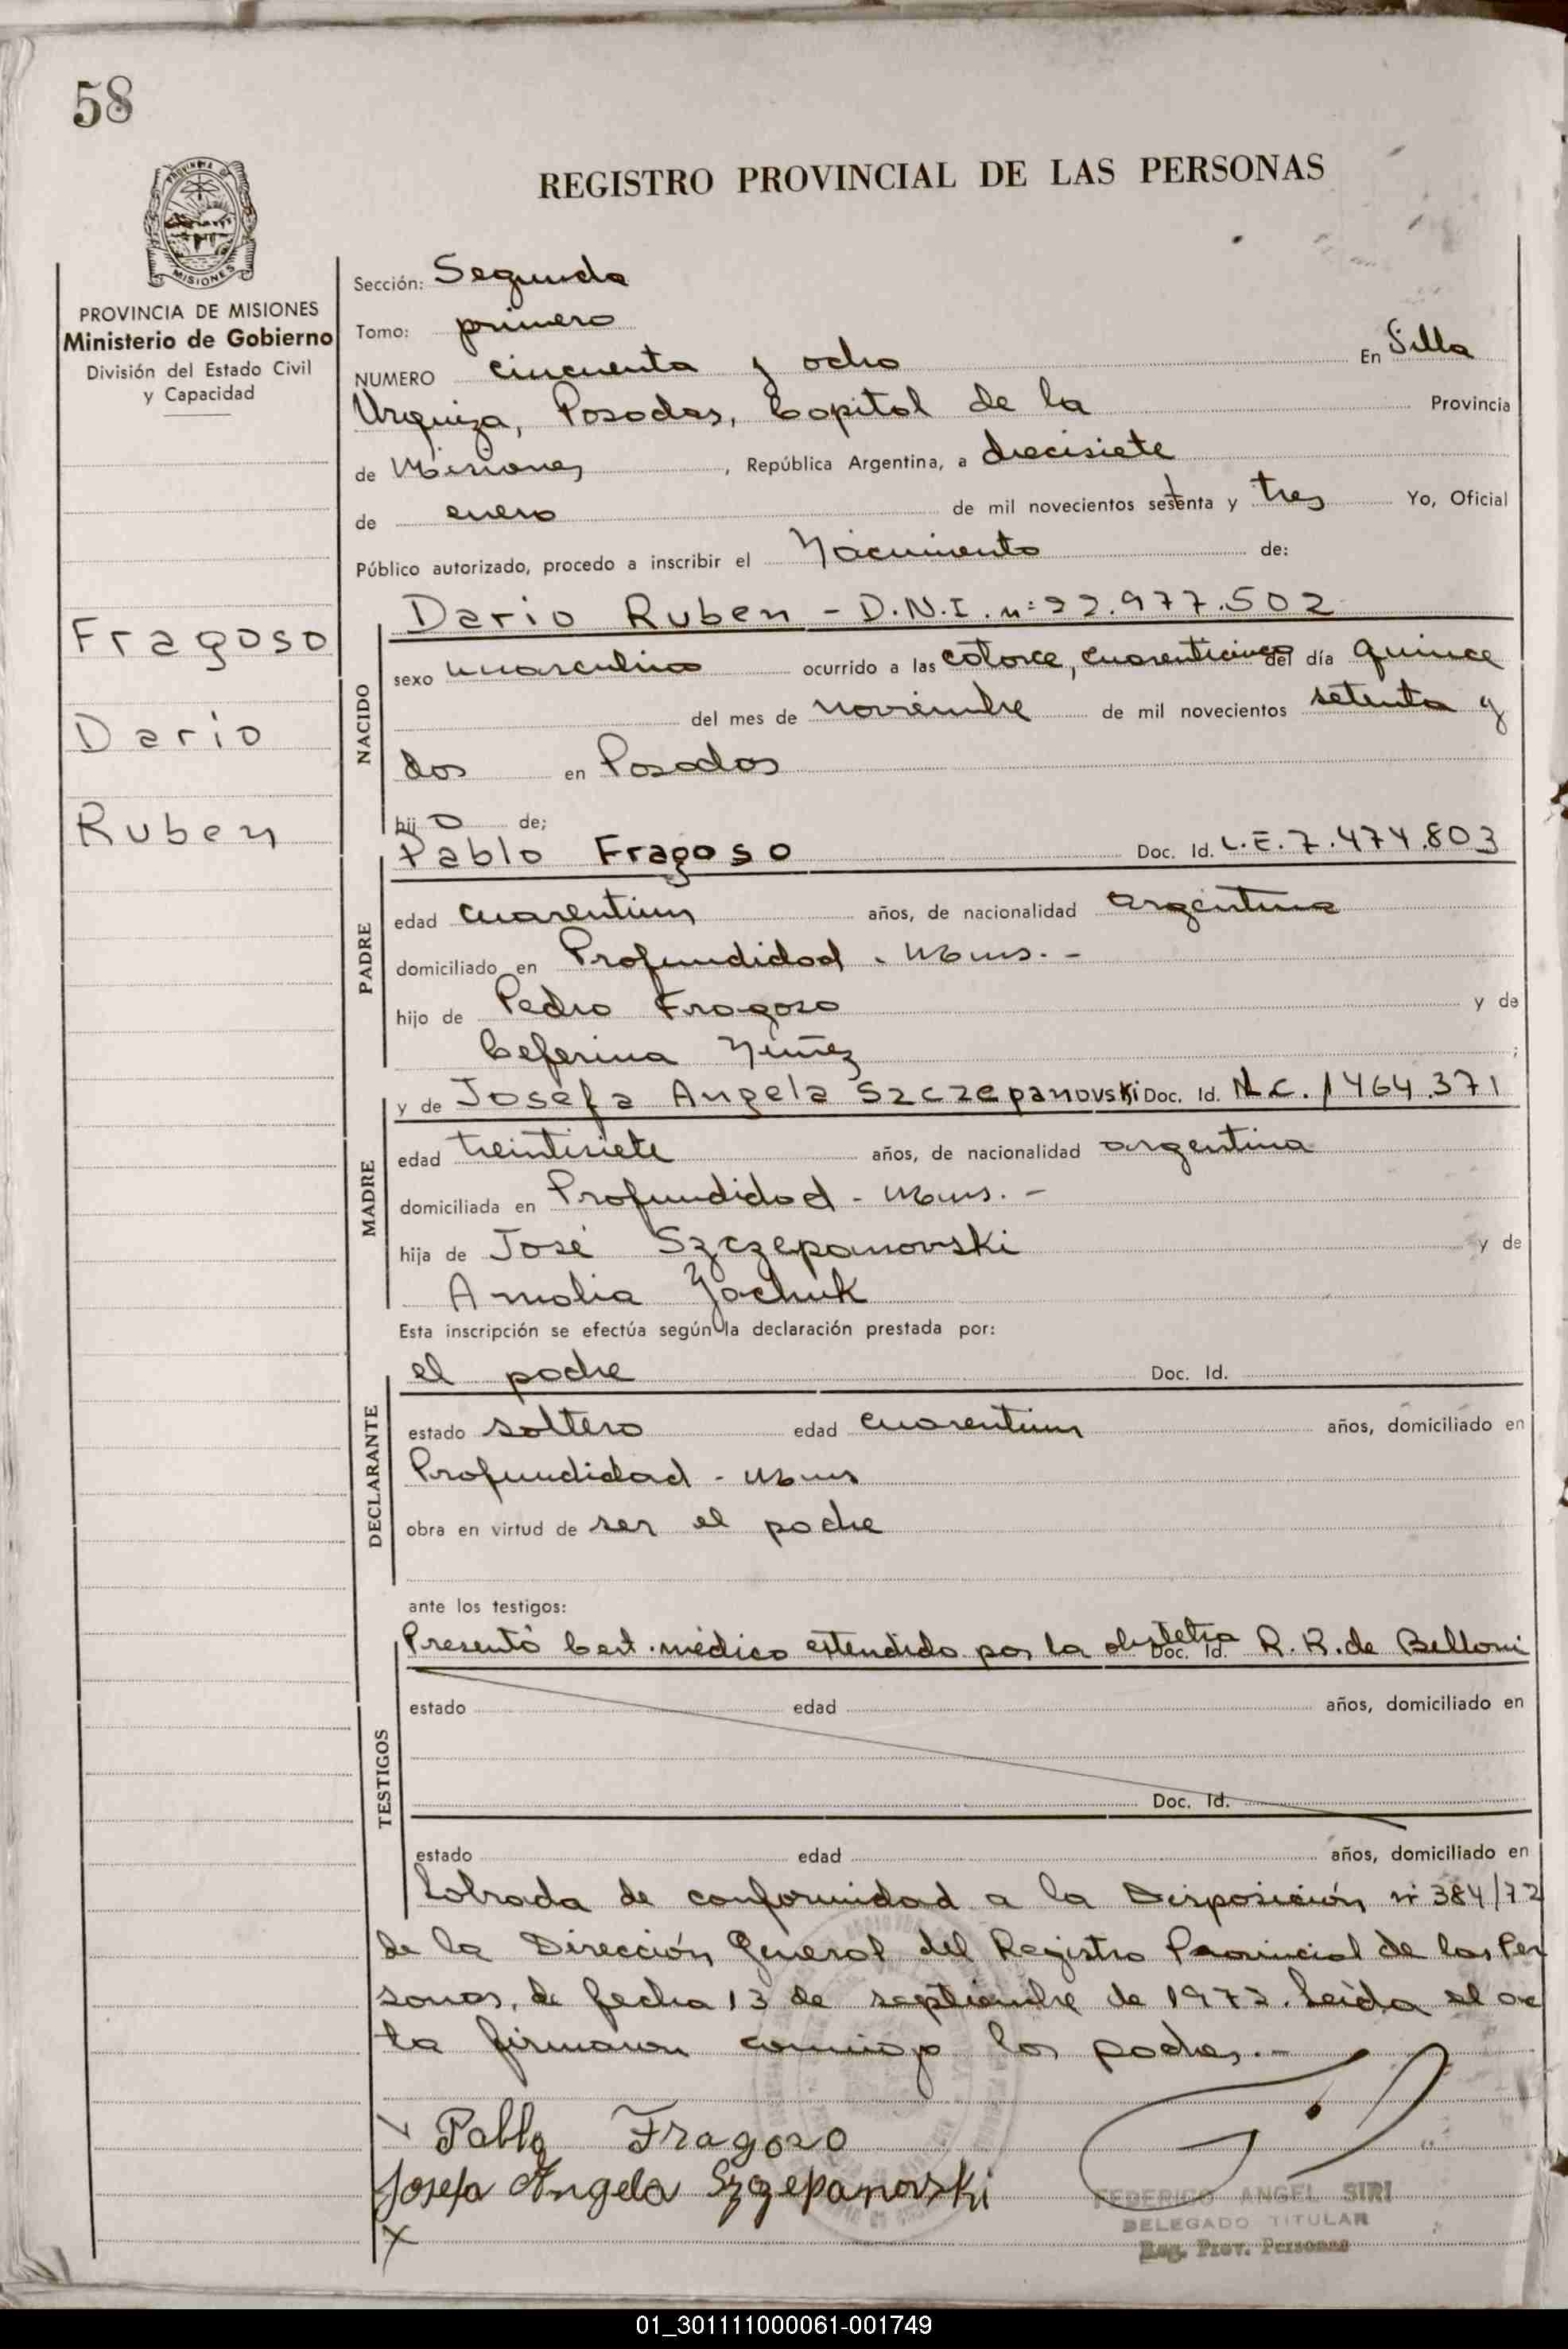 58
REGISTRO PROVINCIAL DE LAS PERSONAS
PROVINCIA
MISIONES
PROVINCIA DE MISIONES
Ministerio de Gobierno
División del Estado Civil
y Capacidad
Fragoso
Dario
Ruben
Sección: Segunda
Tomo: primero
NUMERO cincuenta y ocho En Villa
Urquiza, Posadas, Capital de la Provincia
de Misiones, República Argentina, a diecisiete
de enero de mil novecientos setenta y tres Yo, Oficial
Público autorizado, procedo a inscribir el Nacimiento de:
NACIDO
Dario Ruben - D.N.I. nº 22.977.502
sexo masculino ocurrido a las catorce, cuarenticinco del día quince
del mes de noviembre de mil novecientos setenta y
dos en Posadas
hijo de;
PADRE
Pablo Fragoso Doc. Id. L.E. 7.474.803
edad cuarentiun años, de nacionalidad argentina
domiciliado en Profundidad - Mnes. -
hijo de Pedro Fragozo y de
Ceferina Núñez ;
MADRE
y de Josefa Angela Szczepanovski Doc. Id. N.C. 1464.371
edad treintisiete años, de nacionalidad argentina
domiciliada en Profundidad - Mnes. -
hija de José Szczepanovski y de
Amalia Jachuk
Esta inscripción se efectúa según la declaración prestada por:
DECLARANTE
el padre Doc. Id.
estado soltero edad cuarentiun años, domiciliado en
Profundidad - Mnes
obra en virtud de ser el padre
ante los testigos:
TESTIGOS
Presentó Cert. médico extendido por la obstetra Doc. Id. R. R. de Belloni
estado edad años, domiciliado en
Doc. Id.
estado edad años, domiciliado en
Labrada de conformidad a la Disposición nº 384/72
de la Dirección General del Registro Provincial de las Per
sonas, de fecha 13 de septiembre de 1972. Leída el ac
ta firmaron conmigo los padres. -
Pablo Fragozo
Josefa Angela Szczepanovski
X
FEDERICO ANGEL SIRI
DELEGADO TITULAR
Reg. Prov. Personas
01_301111000061-001749